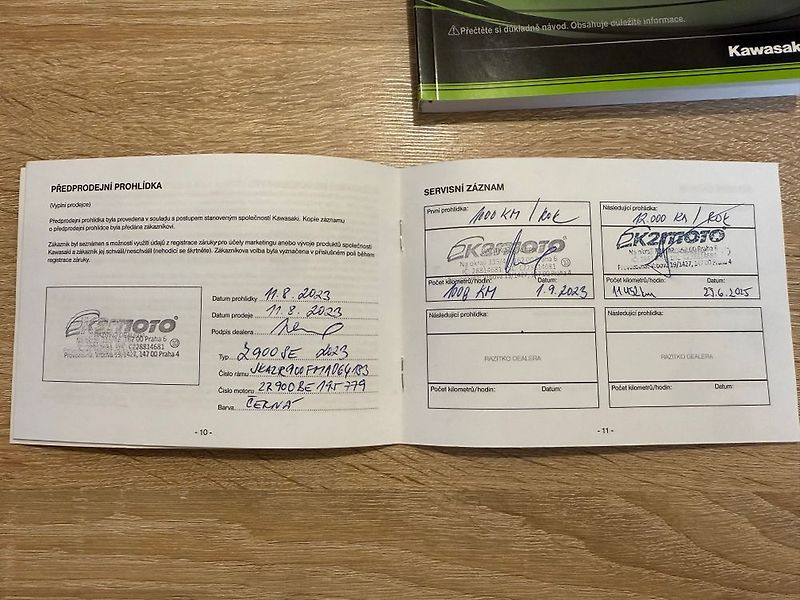 ⚠ Přečtěte si důkladně návod. Obsahuje důležité informace.
Kawasak
PŘEDPRODEJNÍ PROHLÍDKA
(Vyplní prodejce)
Předprodejní prohlídka byla provedena v souladu s postupem stanoveným společností Kawasaki. Kopie záznamu
o předprodejní prohlídce byla předána zákazníkovi.
Zákazník byl seznámen s možností využití údajů z registrace záruky pro účely marketingu anebo vývoje produktů společností
Kawasaki a zákazník jej schválil/neschválil (nehodící se škrtněte). Zákazníkova volba byla vyznačena v příslušném poli během
registrace záruky.
K2MOTO
147 00 Praha 6
CZ28814681
Provozovna: Vrbova 19/1427, 147 00 Praha 4
Datum prohlídky 11.8.2023
Datum prodeje 11.8.2023
Podpis dealera
Typ Z900SE 2023
Číslo rámu
Číslo motoru ZR900BE 145779
Barva ČERNÁ
- 10 -
SERVISNÍ ZÁZNAM
První prohlídka: 1000 KM / ROK
K2MOTO
Na okraji Praha 6
IČ: 28814681
147 00 Praha 4
Počet kilometrů/hodin: Datum:
1008 KM 1.9.2023
Následující prohlídka:
12.000 KM / ROK
K2MOTO
Praha 6
19/1427, 147 00 Praha 4
Počet kilometrů/hodin: Datum:
11452km 23.6.2025
Následující prohlídka:
RAZÍTKO DEALERA
Počet kilometrů/hodin: Datum:
Následující prohlídka:
RAZÍTKO DEALERA
Počet kilometrů/hodin: Datum:
- 11 -